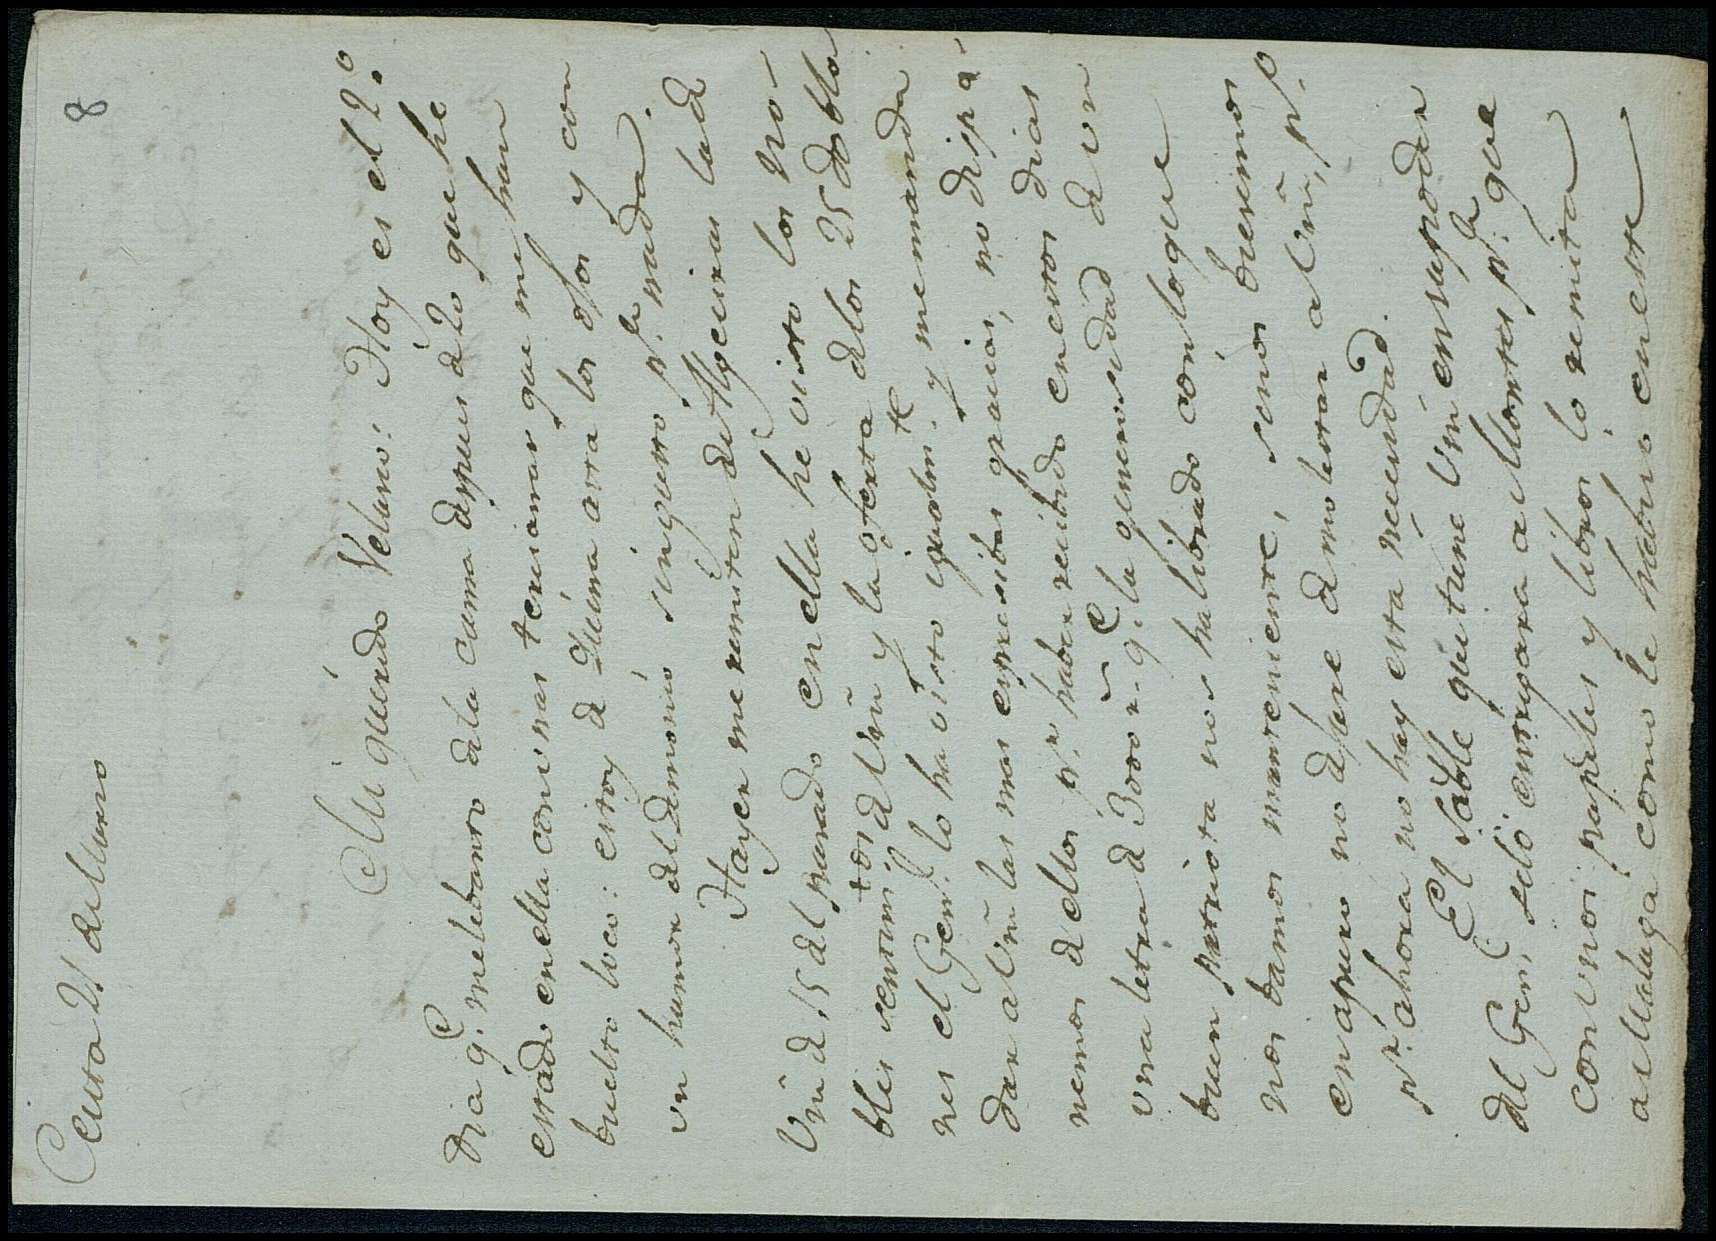 8
Ceuta 21 de Marzo
Mi querido Velasco: Hoy es el 2.º
dia q.e me lebanto de la cama despues de 20 que he
estado en ella con unas tercianas que me han
buelto loco: estoy de Quina asta los ojos y con
un humor del Demonio sin gusto p.a nada.
Hayer me remiten de Algeciras la de
Vm̃ de 15 del pasado en ella he visto los no-
bles sentim.tos de Vm̃ y la oferta de los 25 doblo
nes el Gen.l lo ha visto igualm.te y me manda
dar a Vm̃ las mas espresibas gracias, no dispo-
nemos de ellos p.r haber recibido en estos dias
una letra de 3000 r.s q.e la generosidad de un
buen patriota nos ha librado con lo que
nos bamos manteniente, si nos bieremos
en apuro no dejare de molestar a Vm̃, p.o
p.r ahora no hay esta necesidad.
El sable que tiene Vm̃ en su poder
del Gen.l, selo entregara a Montes p.a que
con unos papeles y libros lo remita
a Malaga como le habiso en este